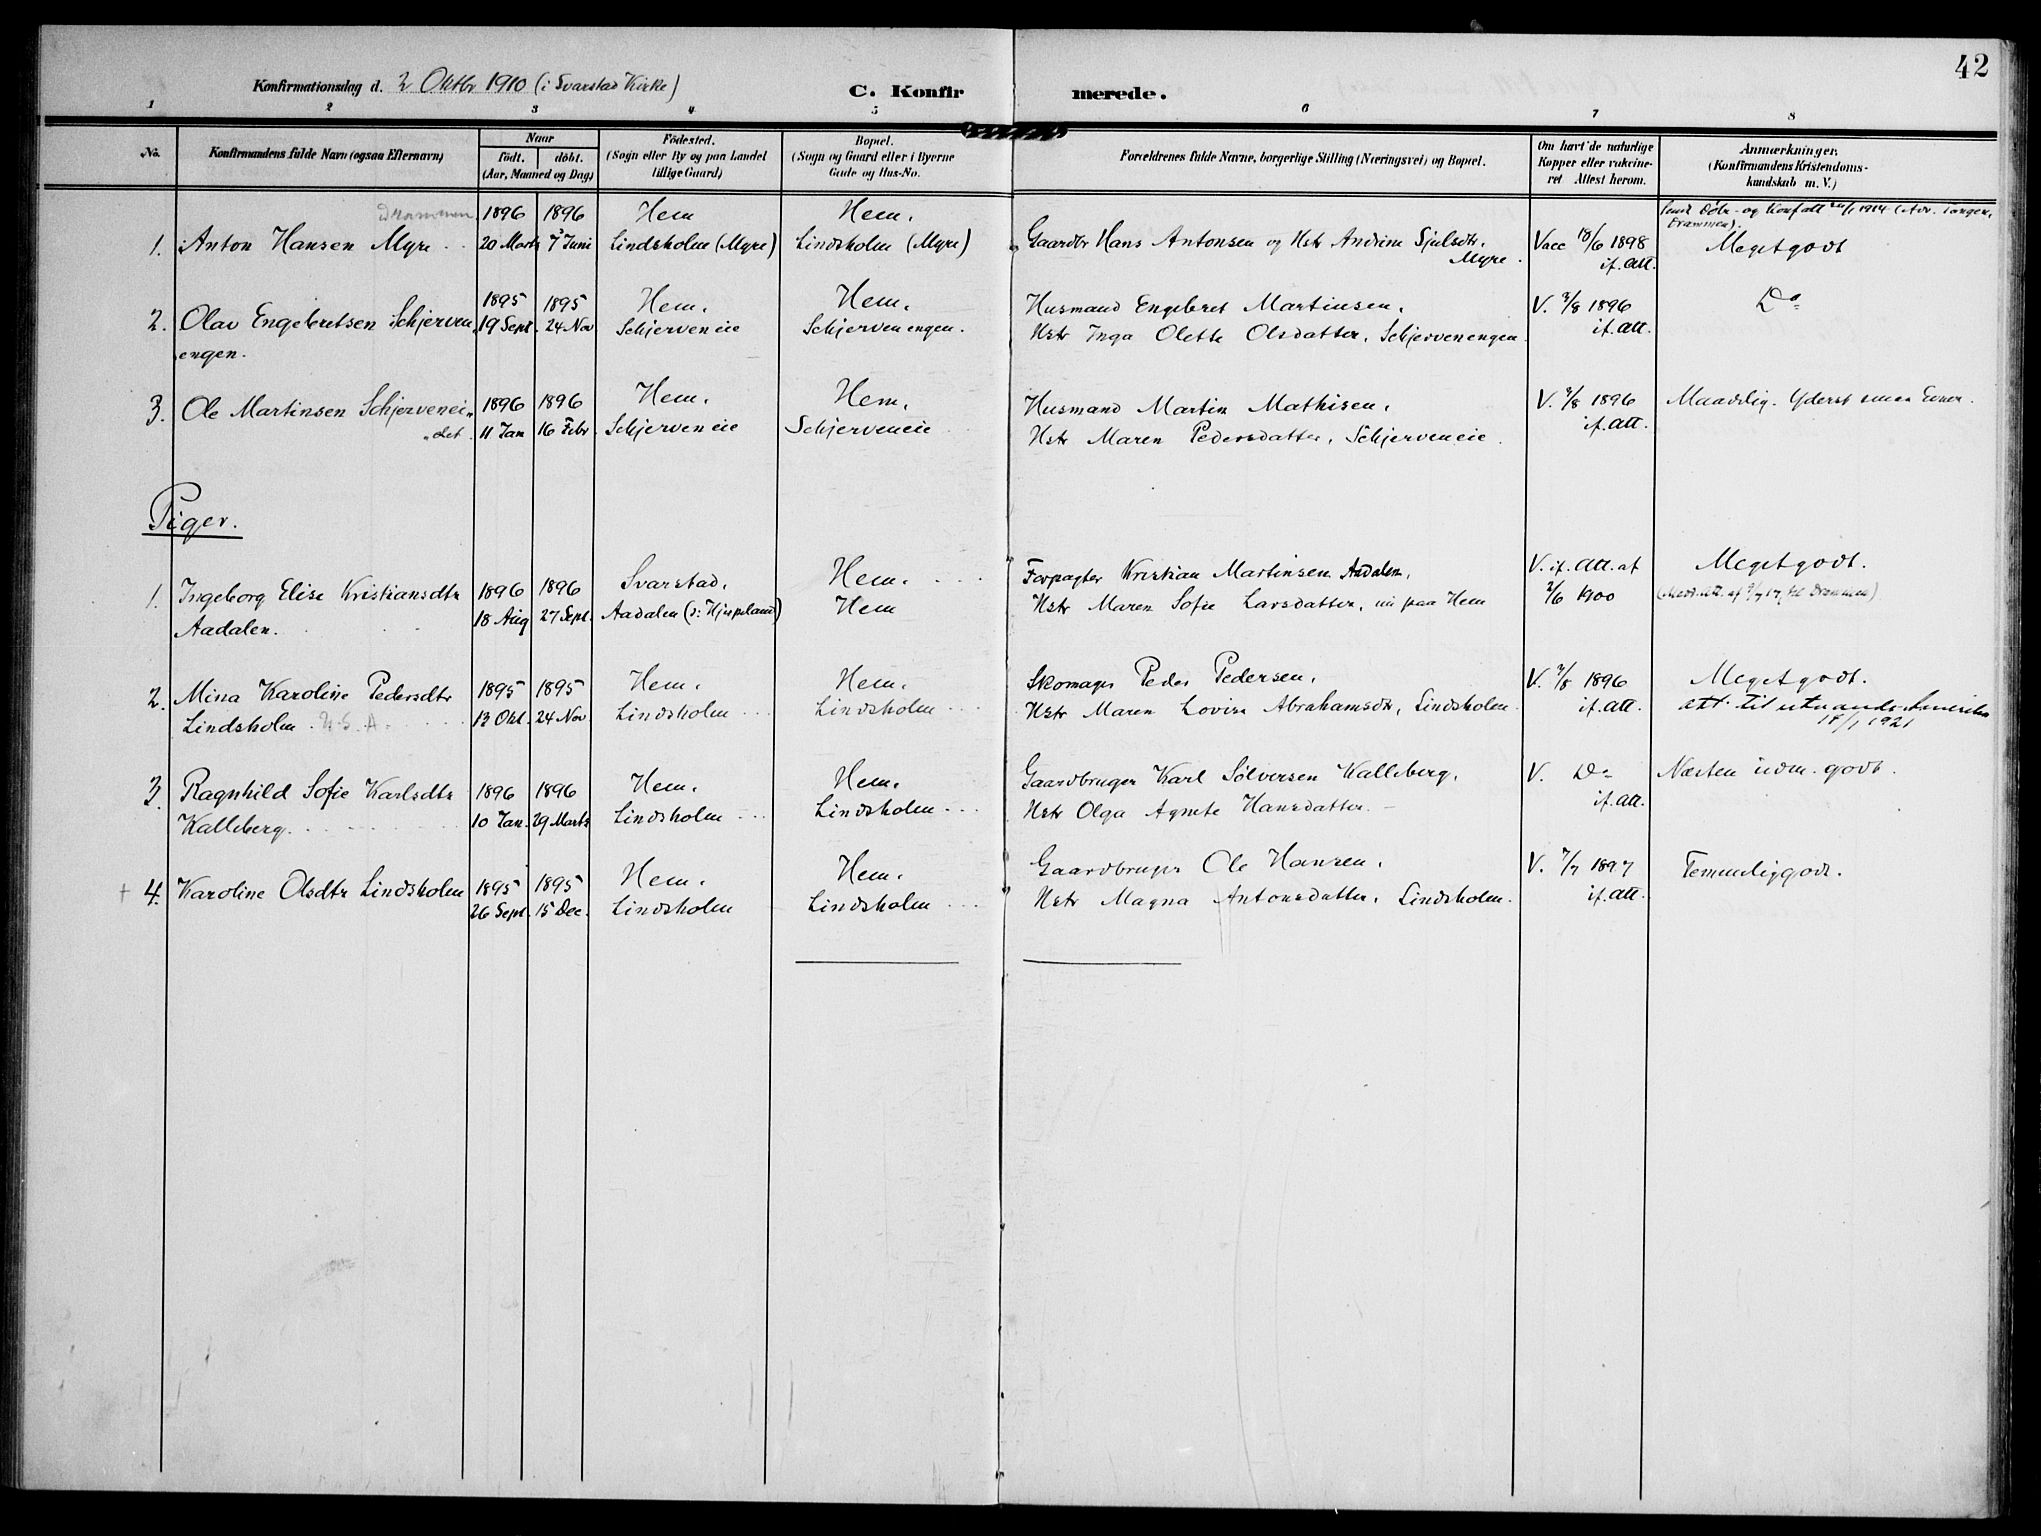 42
Konfirmationsdag d. 2 Oktbr 1910 (i Svarstad Kirke)
C. Konfirmerede.
1 2 3 4 5 6 7 8
No.
Konfirmandens fulde Navn (ogsaa Efternavn)
Naar
födt. döbt.
(Aar, Maaned og Dag)
Födested.
(Sogn eller By og paa Landet
tillige Gaard)
Bopæl.
(Sogn og Gaard eller i Byerne
Gade og Hus-No.
Forældrenes fulde Navne, borgerlige Stilling (Næringsvei) og Bopæl.
Om havt de naturlige
Kopper eller vakcine-
ret Attest herom.
Anmærkninger.
(Konfirmandens Kristendoms-
kundskab m. V.)
Drammen 1896 1896 Hem Hem. Sendt Döbs- og Konf.att 1914 (Adr. Tangen,
Drammen).
1. Anton Hansen Myre 20 Marts 7 Juni Lindsholm (Myre) Lindsholm (Myre) Gaardbr Hans Antonsen og Hstr Andrine Sjulsdtr. Vacc 18/6 1898 Meget godt
Myre. if. att.
1895 1895 Hem. Hem. Husmand Engebret Martinsen, V. 3/8 1896 Do
2. Olav Engebretsen Schjerven 19 Sept. 24 Nov Schjerveneie Schjervenengen. Hstr Inga Olette Olsdatter, Schjervenengen if. att.
engen.
3. Ole Martinsen Schjervenei 1896 1896 Hem. Hem. Husmand Martin Mathisen, V. 3/8 1896 Maadelig. Yderst smaa Evner.
det 11 Jan 16 Febr. Schjerveneie Schjerveneie Hstr Maren Pedersdatter, Schjerveneie. if. att.
Piger.
1. Ingeborg Elise Kristiansdtr 1896 1896 Svarstad. Hem. Forpagter Kristian Martinsen Aadalen, V. if. att. af Meget godt.
Aadalen. 18 Aug 27 Sept. Aadalen (o: Hjuspeland) Hem Hstr Maren Sofie Larsdatter, nu paa Hem 2/6 1900 til Drammen)
2. Mina Karoline Pedersdtr 1895 1895 Hem. Hem. Skomager Peder Pedersen, V. 3/8 1896 Meget godt.
Lindsholm. U.S.A. 13 Okt. 24 Nov Lindsholm Lindsholm Hstr Maren Lovise Abrahamsdtr, Lindsholm. if. att. att. til utvandr. Amerika
18/1 1921
3. Ragnhild Sofie Karlsdtr 1896 1896 Hem. Hem. Gaardbruger Karl Sölversen Kalleberg, V. Do Næsten udm. godt.
Kalleberg. 10 Jan. 29 Marts Lindsholm Lindsholm Hstr Olga Agnete Hansdatter. if. att.
+ 4. Karoline Olsdtr Lindsholm 1895 1895 Hem. Hem. Gaardbruger Ole Hansen, V. 7/7 1897 Temmeliggodt.
26 Sept. 15 Dec. Lindsholm Lindsholm Hstr Magna Antonsdatter, Lindsholm. if. att.